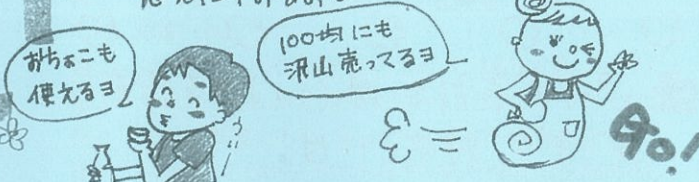 おちょこも
使えるヨ
100均にも
沢山売ってるヨ
Go!